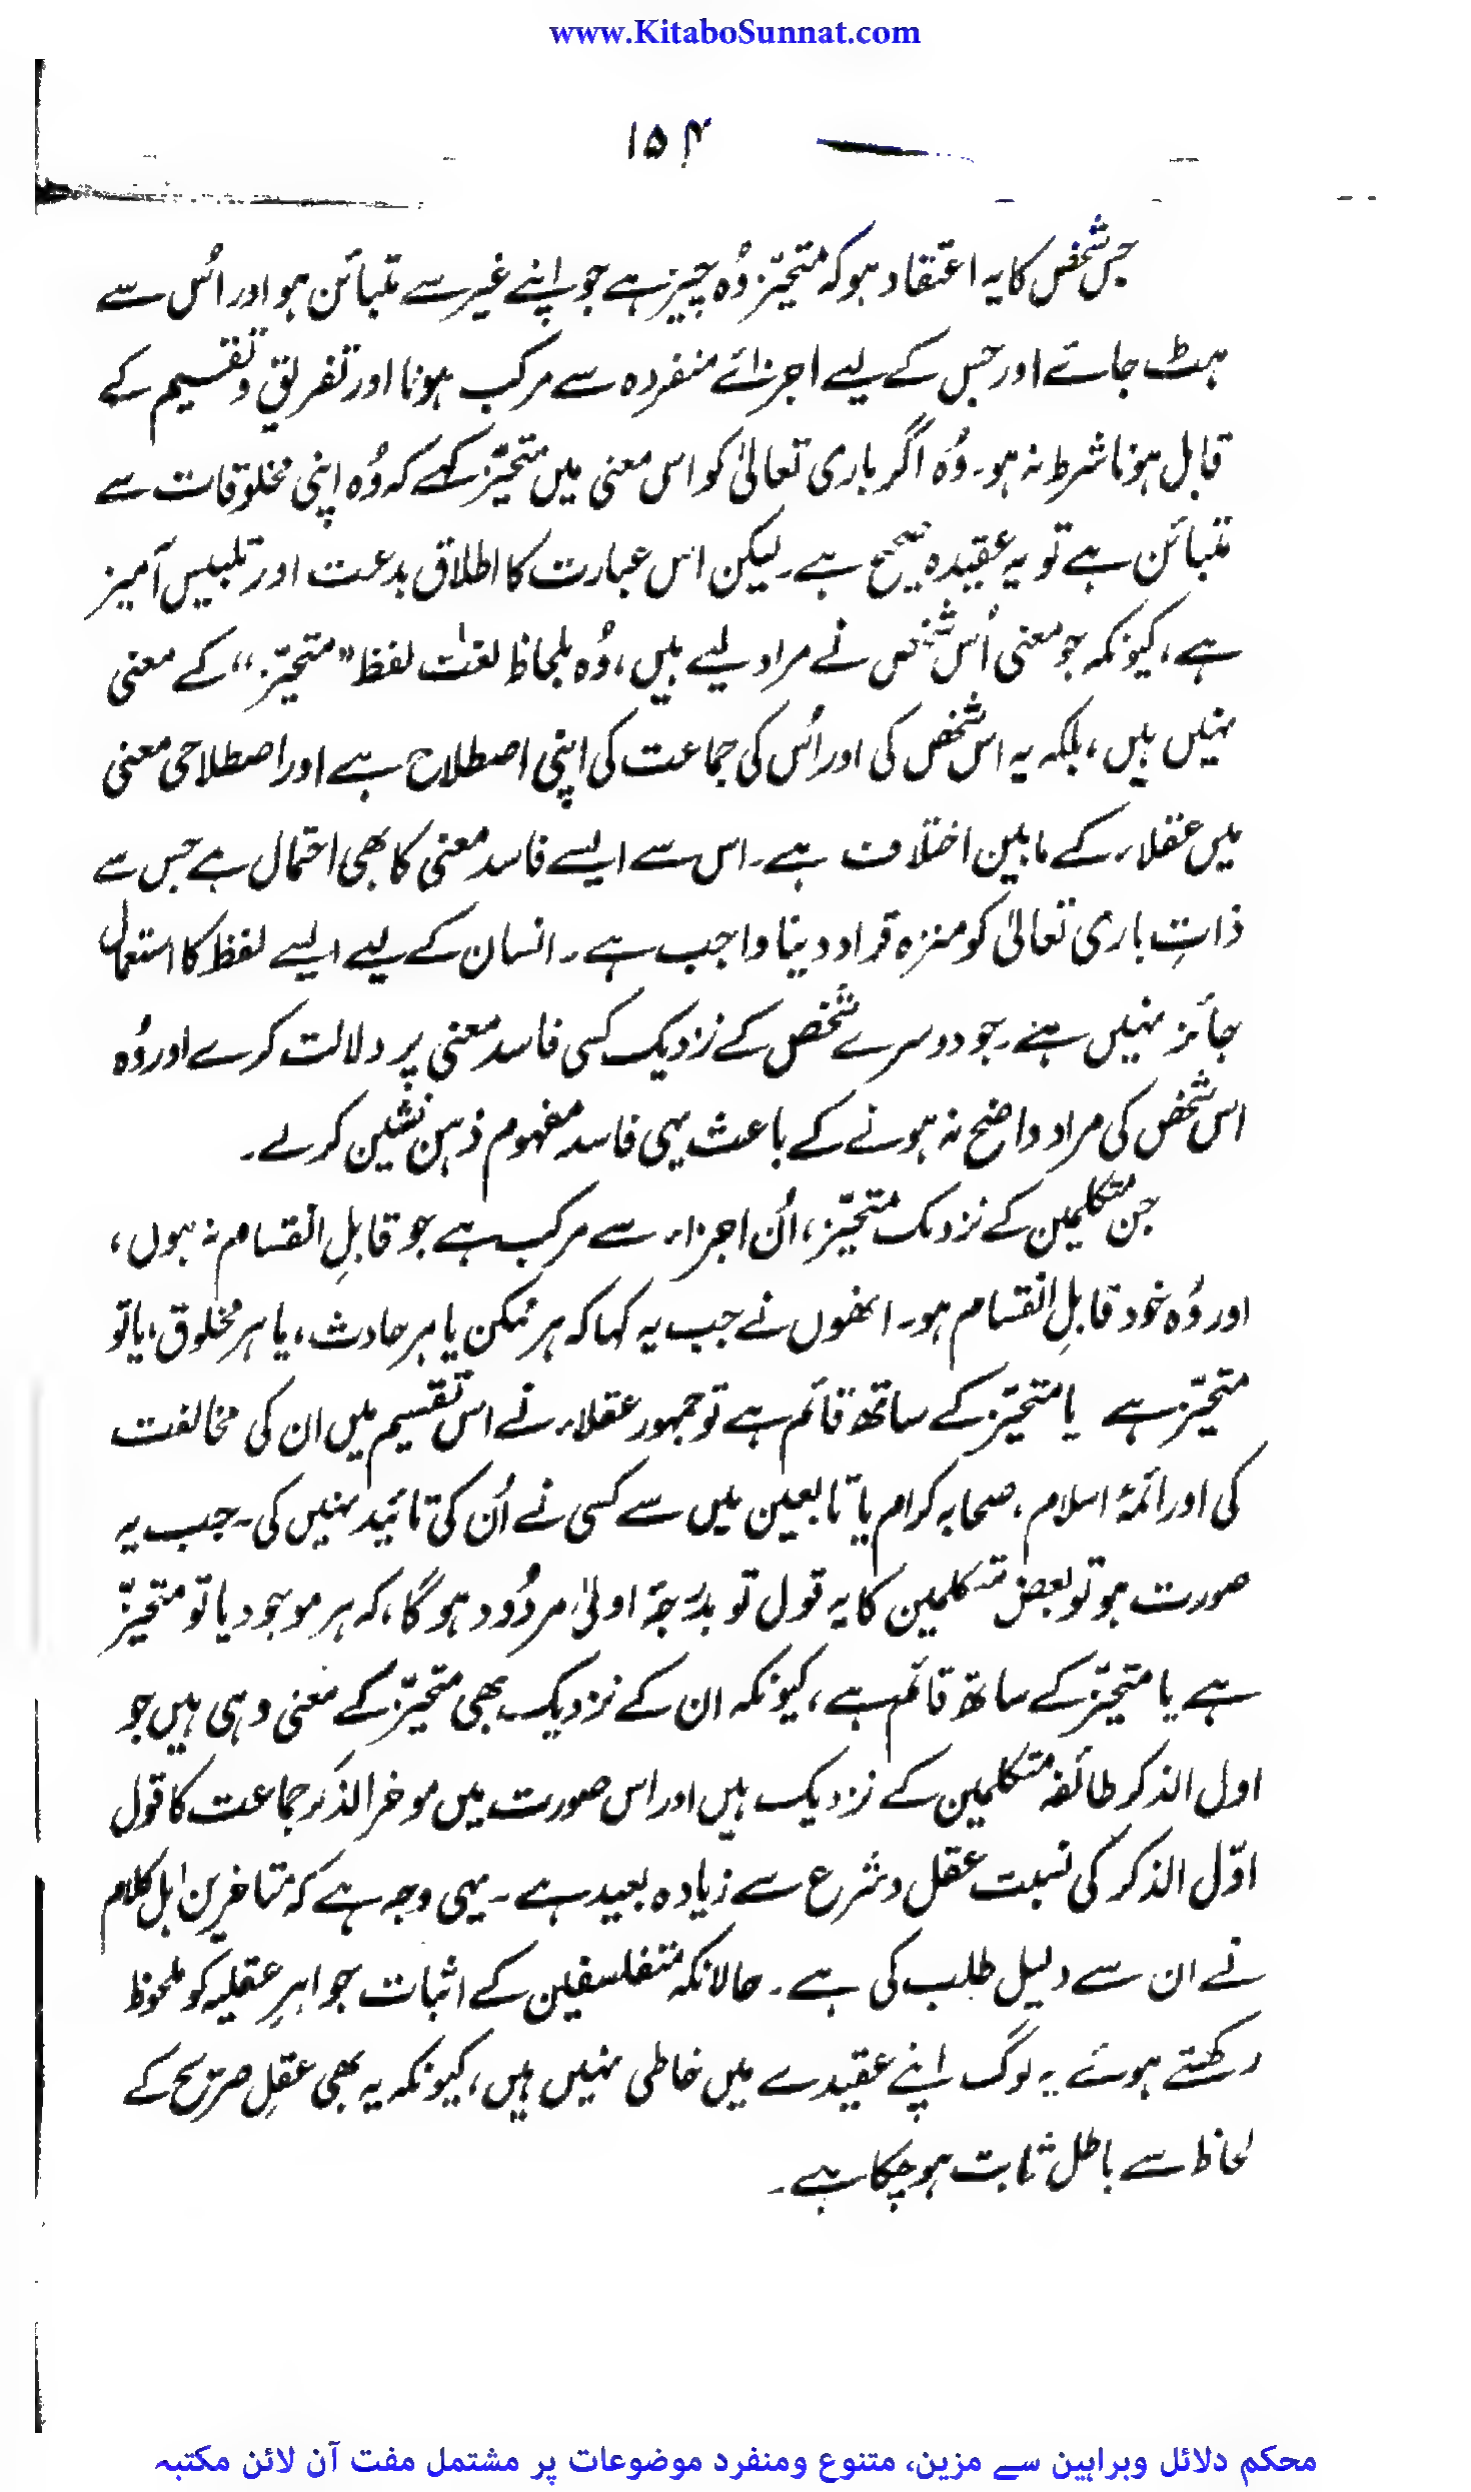 www.KitaboSunnat.com
۱۵۴
جس شخص کا یہ اعتقاد ہو کہ متحیّز وُہ چیز ہے جو اپنے غیر سے متبائن ہو اور اُس سے
ہٹ جاتے اور جس کے لیے اجزائے منفردہ سے مرکب ہونا اور تفریق و تقسیم کے
قابل ہونا شرط نہ ہو۔ وُہ اگر باری تعالیٰ کو اس معنی میں متحیّز کہے کہ وُہ اپنی مخلوقات سے
متبائن ہے تو یہ عقیدہ صحیح ہے۔ لیکن اس عبارت کا اطلاق بدعت اور تلبیس آمیز
ہے، کیونکہ جو معنی اُس شخص نے مراد لیے ہیں، وُہ بلحاظ لغت لفظ ”متحیّز“ کے معنی
نہیں ہیں، بلکہ یہ اس شخص کی اور اُس کی جماعت کی اپنی اصطلاح ہے اور اصطلاحی معنی
میں عقلاء کے مابین اختلاف ہے۔ اس سے ایسے فاسد معنی کا بھی احتمال ہے جس سے
ذاتِ باری تعالیٰ کو منزہ قرار دینا واجب ہے۔ انسان کے لیے ایسے لفظ کا استعمال
جائز نہیں ہے۔ جو دوسرے شخص کے نزدیک کسی فاسد معنی پر دلالت کرے اور وُہ
اس شخص کی مراد واضح نہ ہونے کے باعث یہی فاسد مفہوم ذہن نشین کر لے۔
جن متکلمین کے نزدیک متحیّز، اُن اجزاء سے مرکب ہے جو قابلِ انقسام نہ ہوں،
اور وُہ خود قابلِ انقسام ہو۔ انھوں نے جب یہ کہا کہ ہر ممکن یا ہر حادث، یا ہر مخلوق، یا تو
متحیّز ہے یا متحیّز کے ساتھ قائم ہے تو جمہور عقلاء نے اس تقسیم میں ان کی مخالفت
کی اور ائمۂ اسلام، صحابہ کرام یا تابعین میں سے کسی نے اُن کی تائید نہیں کی۔ جب یہ
صورت ہو تو بعض متکلمین کا یہ قول تو بدرجۂ اولیٰ مردُود ہوگا، کہ ہر موجود یا تو متحیّز
ہے یا متحیّز کے ساتھ قائم ہے، کیونکہ ان کے نزدیک بھی متحیّز کے معنی وہی ہیں جو
اول الذکر طائفہ متکلمین کے نزدیک ہیں اور اس صورت میں موخر الذکر جماعت کا قول
اوّل الذکر کی نسبت عقل و شرع سے زیادہ بعید ہے۔ یہی وجہ ہے کہ متاخرین اہل کلام
نے ان سے دلیل طلب کی ہے۔ حالانکہ متفلسفین کے اثبات جواہرِ عقلیہ کو ملحوظ
رکھتے ہوئے یہ لوگ اپنے عقیدے میں خاطی نہیں ہیں، کیونکہ یہ بھی عقلِ صریح کے
لحاظ سے باطل ثابت ہو چکا ہے۔
محکم دلائل وبراہین سے مزین، متنوع ومنفرد موضوعات پر مشتمل مفت آن لائن مکتبہ